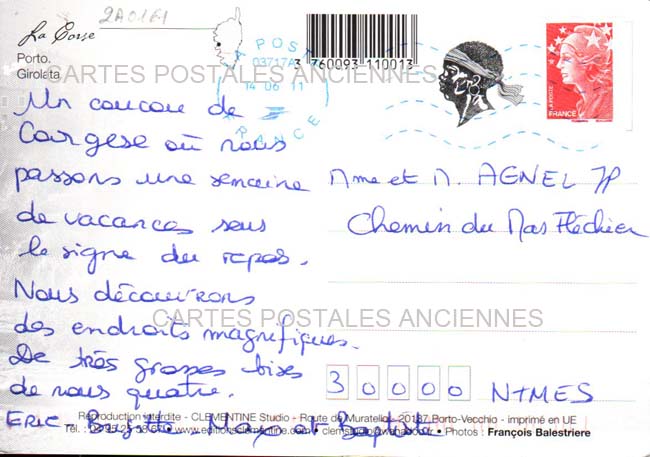 2A0161
La Corse
Porto.
Girolata
3 760093 110013
LA POSTE
03717A
14 06 11
FRANCE
LA POSTE
FRANCE
CARTES POSTALES ANCIENNES
Un coucou de
Cargese où nous
passons une semaine
de vacances sous
le signe du repos.
Nous découvrons
des endroits magnifiques.
De très grosses bises
de nous quatre.
ERIC - Brigitte - Max et Baptiste
Mme et M. AGNEL JP
Chemin du Mas Fléchier
30000 NIMES
CARTES POSTALES ANCIENNES
Reproduction interdite - CLEMENTINE Studio - Route de Muratello - 20137 Porto-Vecchio - imprimé en UE
Tél. : 04 95 www.editionsclementine.com • Photos : François Balestriere